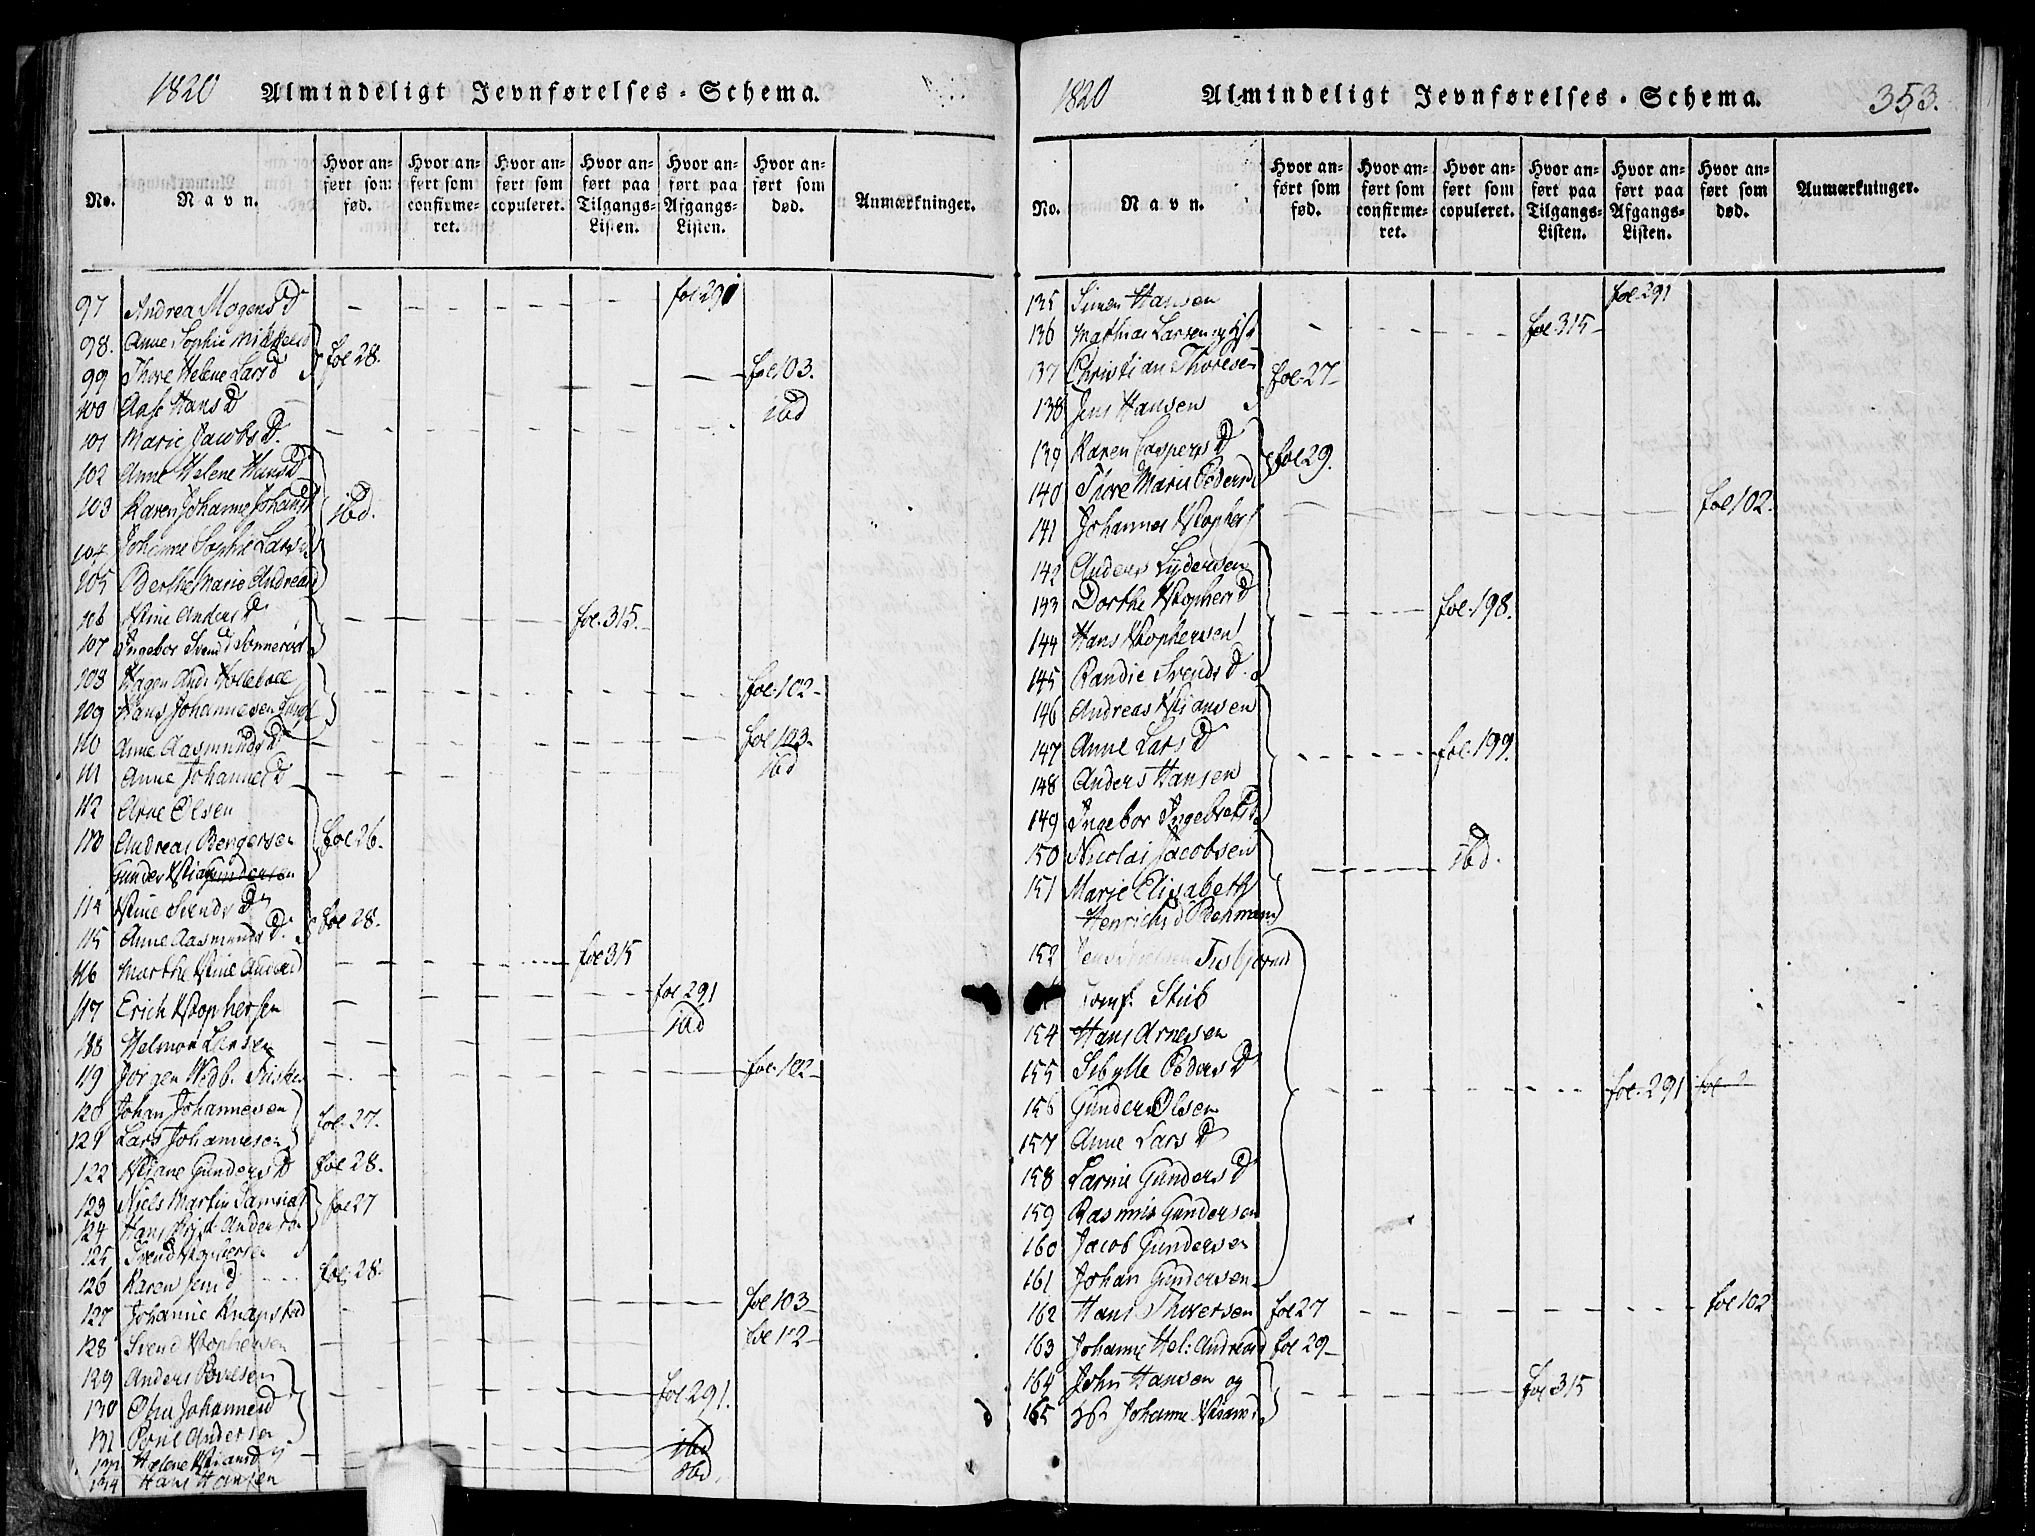 1820 Almindeligt Jevnførelses-Schema.
No.
Navn.
Hvor anført som fød.
Hvor anført som confirmeret.
Hvor anført som copuleret.
Hvor anført paa Tilgangs-Listen.
Hvor anført paa Afgangs-Listen.
Hvor anført som død.
Anmærkninger.
97 Andrea Mogens D — fol 291
98. Anne Sophie Mikkels D
99 Thore Helene Lars D fol 28. — fol 103.
100 Aase Hans D — ibd
101 Marie Jacobs D.
102 Anne Helene Hans D
103 Karen Johanne Johans D ibd.
104 Johanne Sophie Lars D
105 Berthe Marie Andreas D
106 Stine Anders D — fol. 315.
107 Ingebor Svend D Tonnerød
108 Hagen And: Holleboll — fol. 102
109 Hans Johannesen
110 Anne Aasmunds D — fol 103.
111 Anne Johannes D — ibd
112 Arne Olsen
113 Andreas Bengersen fol 26.
Gunder Gundersen
114 Stine Svends D
115 Anne Aasmunds D. fol 28.
116 Marthe Stine Anders D — fol 315
117 Erich Xstophersen — fol 291
118 Helmon Larsen — ibd
119 Jørgen Wedb. — fol. 102
120 Johan Johannesen
121 Lars Johannesen fol. 27.
122 Xstiane Gunders D fol 28.
123 Niels Martin Samuels
124 Hans Andersen fol 27
125 Svend Xstophersen
126 Karen Jens D fol. 28.
127 Johanne Knapstad — fol 103
128 Svend Xstophersen — fol 102
129 Anders Povelsen
130 Johannes D — fol 291.
131 Povel Andersen
Helene Xstians D — ibd
134 Hans Hansen — ibd.
1820 Almindeligt Jevnførelses-Schema. 353.
No.
Navn.
Hvor anført som fød.
Hvor anført som confirmeret.
Hvor anført som copuleret.
Hvor anført paa Tilgangs-Listen.
Hvor anført paa Afgangs-Listen.
Hvor anført som død.
Anmærkninger.
135 Simen Hansen fol. 291
136 Mathias Larsen og — fol 315
137 Christian Thoresen fol. 27
138 Jens Hansen
139 Karen Caspers D fol 29.
140 Thore Marie Peders D
141 Johannes Xstophers — fol 102.
142 Anders Lydersen
143 Dorthe Xstophers D — fol. 198.
144 Hans Xstophersen
145 Randie Svends D.
146 Andreas Xstiansen
147 Anne Lars D — fol. 199.
148 Anders Hansen
149 Ingebor Ingebrets D
150 Nicolai Jacobsen — ibd.
151 Marie Elisabeth
Henrichs D Behmann
152
Jomf. Stub
154 Hans Arnesen
155 Sibylle Peders D — fol. 291
156 Gunder Olsen
157 Anne Lars D
158 Gunders D
159 Rasmus Gundersen
160 Jacob Gundersen
161 Johan Gundersen
162 Hans Thoresen fol 27 — fol 102
163 Johanne Hel: Andreas D fol 29
164 John Hansen og — fol 315
165 Johanne Xstians D